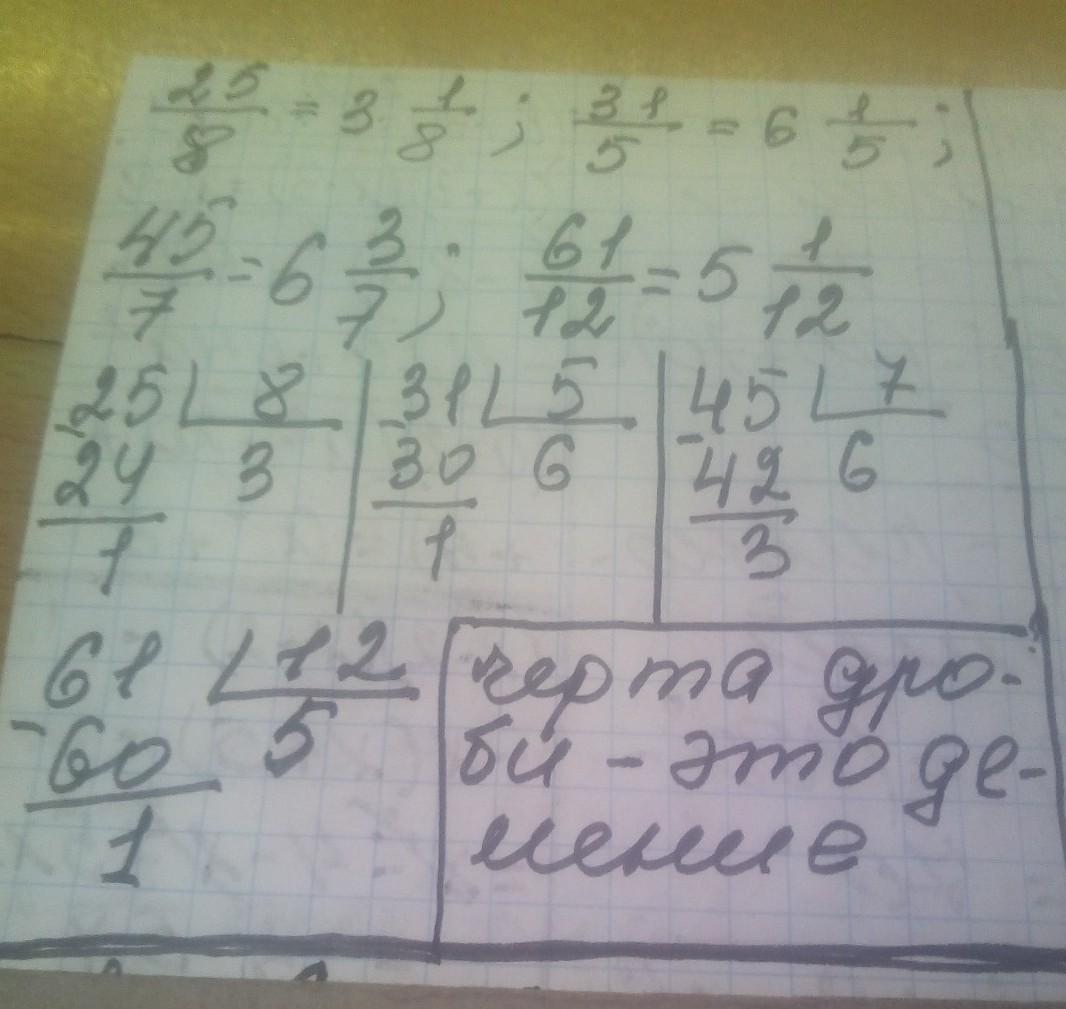 25/8 = 3 1/8 ; 31/5 = 6 1/5 ;
45/7 = 6 3/7 ; 61/12 = 5 1/12
25 8
- 24 3
1
31 5
- 30 6
1
45 7
- 42 6
3
61 12
- 60 5
1
черта дро-
би - это де-
ление